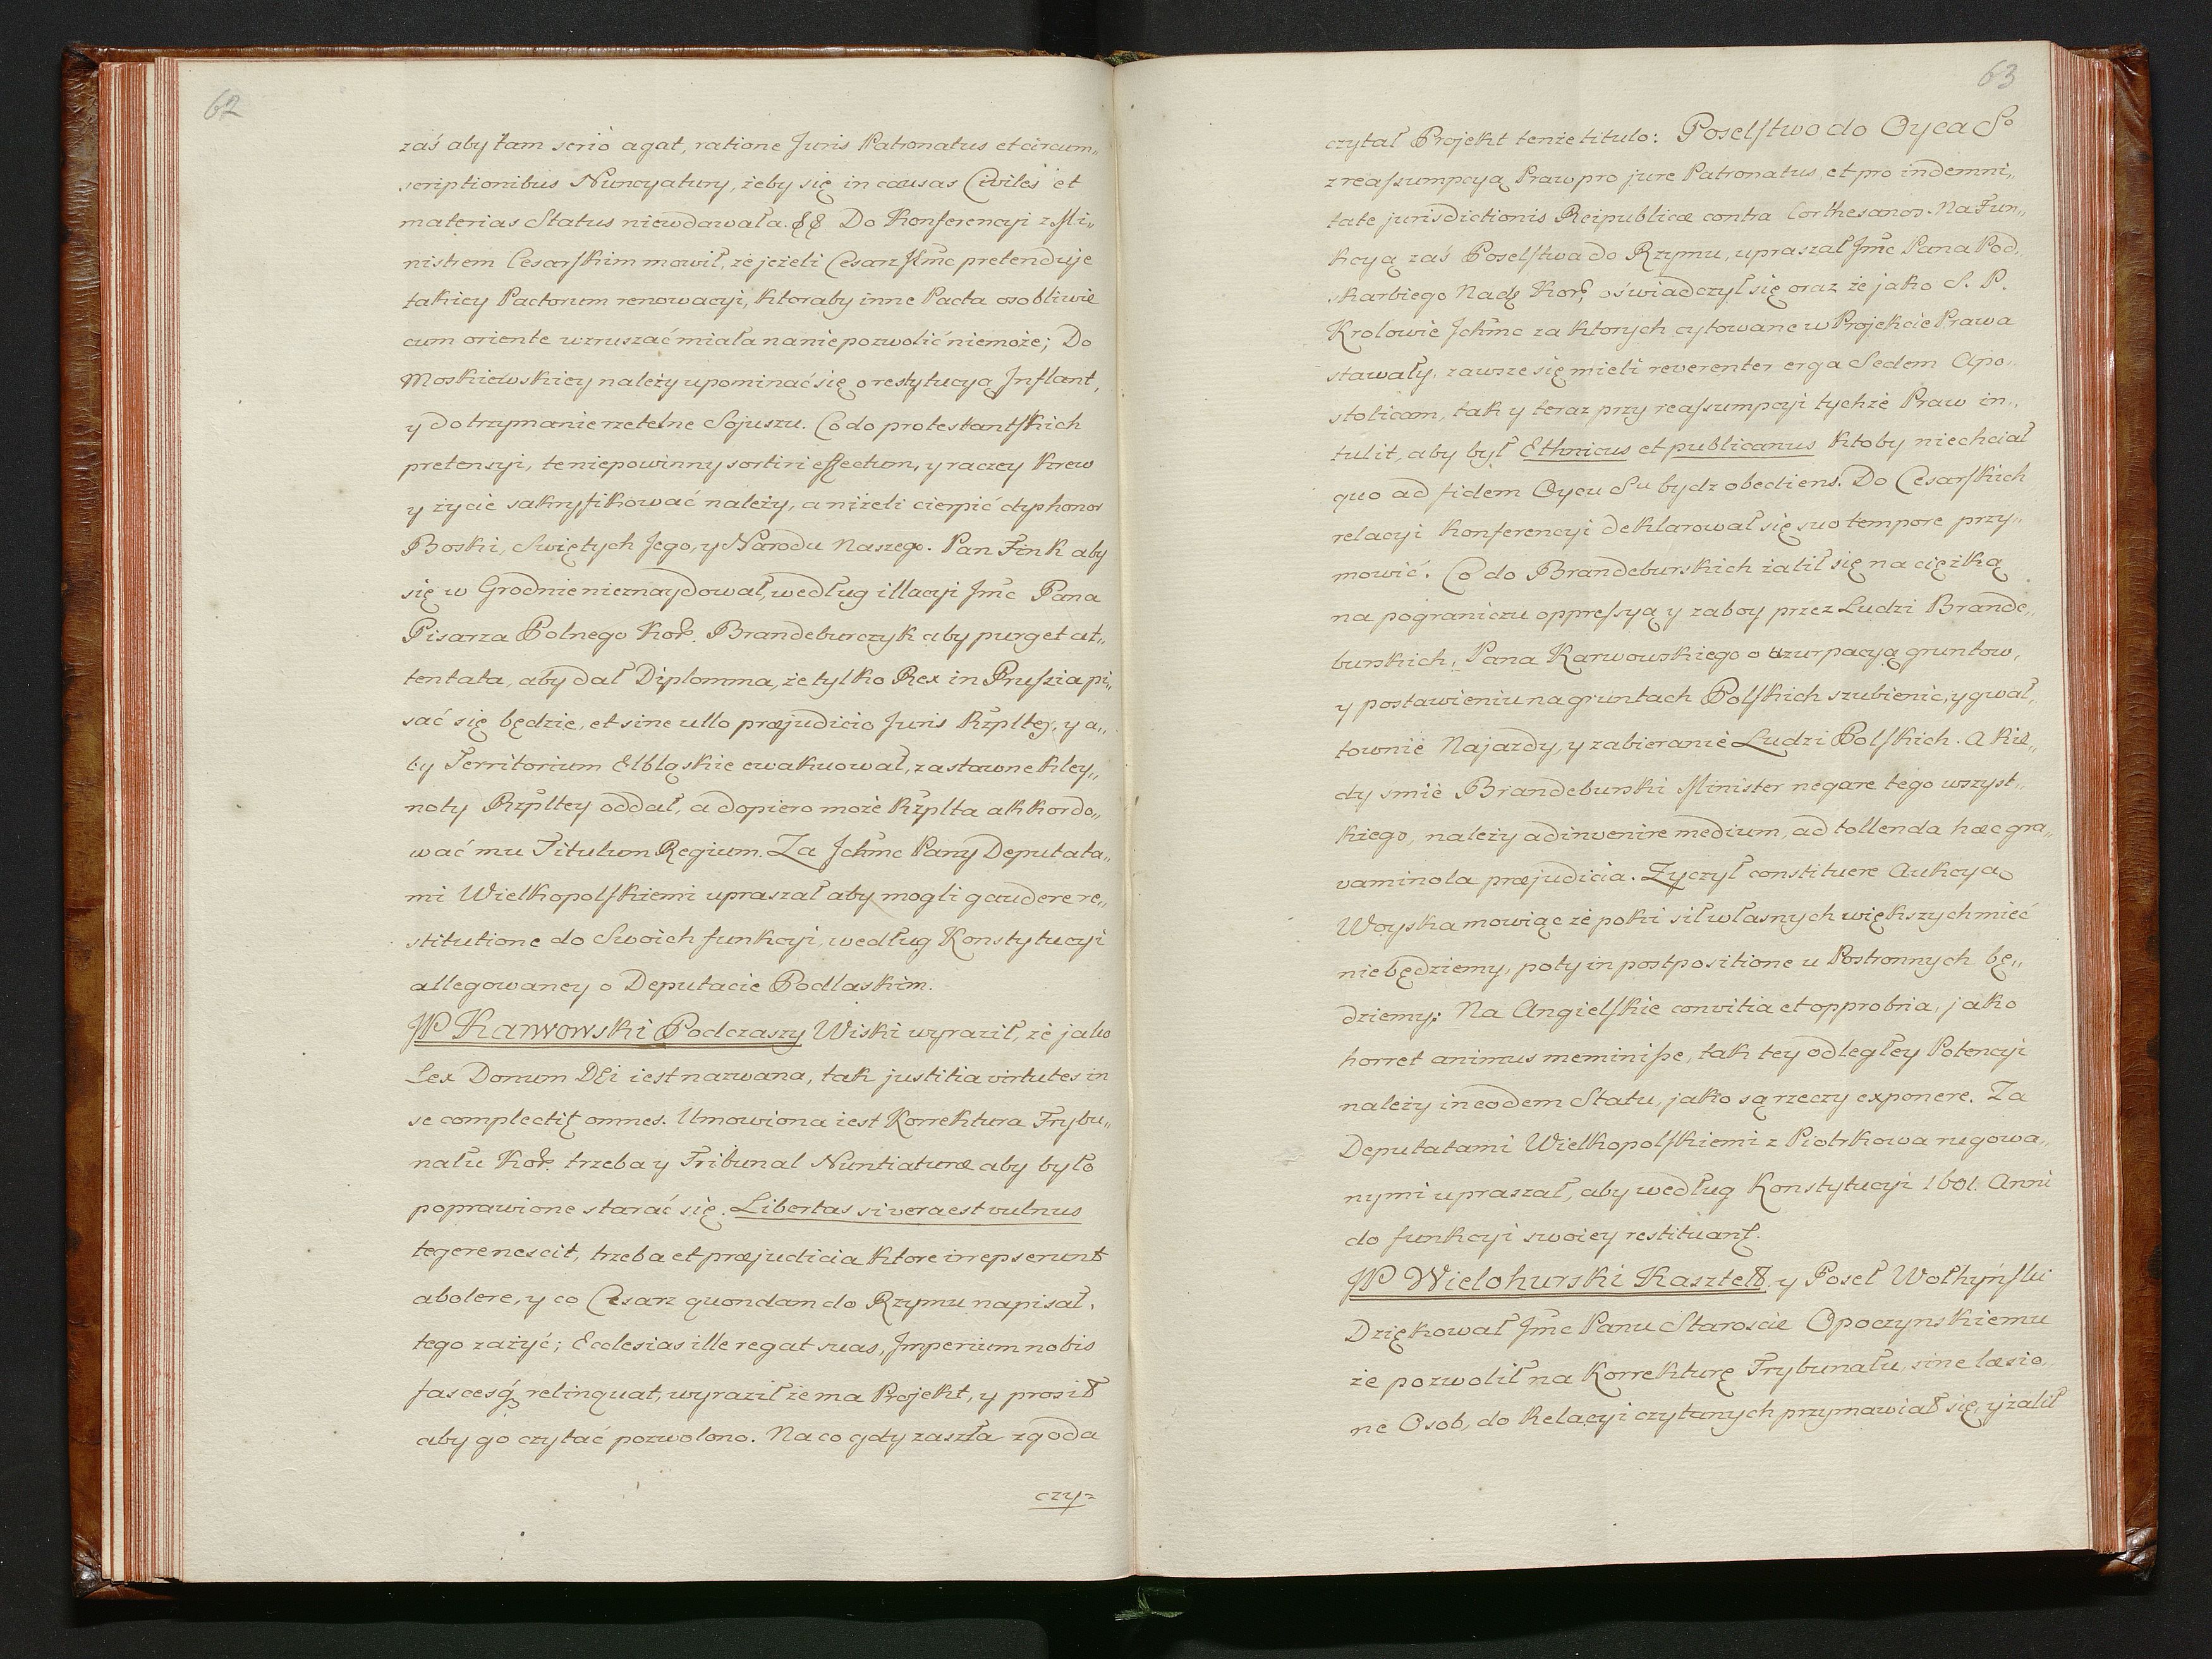 62
zaś aby tam seriò agat, ratione Juris Patronatus et circum„
scriptionibus Nuncyatury, żeby się in causas Civiles et
materias Status niewdawała. && Do Konferencyi z Mi„
nistrem Cesarskim mowił, że jeżeli Cesarz Jmc pretenduje
takiey Pactorum renowacyi, ktoraby inne Pacta osobliwie
cum oriente wzruszać miała na nie pozwolić niemoże; Do
Moskiewskiey należy upominać się o restytucyą Inflant,
y dotrzymanie rzetelne Sojuszu. Co do protestantskich
pretensyi, te niepowinny sortiri effectum, y raczey krew
y życie sakryfikować należy, a niżeli cierpić dyshonor
Boski, Swiętych Jego, y Narodu Naszego. Pan Fink aby
się w Grodnie nieznaydował, według illacyi Jmc Pana
Pisarza Polnego Kor. Brandeburczyk aby purget at„
tentata, aby dał Diplomma, że tylko Rex in Prussia pi„
sać się będzie, et sine ullo præjudicio Juris Rzpltey, y a„
by Territorium Elbląskie ewakuował, zastawne kley„
noty Rzpltey oddał, a dopiero może Rzplta akkordo„
wać mu Titulum Regium. Za Jchmc Pany Deputata„
mi Wielkopolskiemi upraszał aby mogli gaudere re„
stitutione do Swoich funkcyi, według Konstytucyi
allegowaney o Deputacie Podlaskim.
JP Karwowski Podczaszy Wiski wyraził, że jako
Lex Donum DEi iest nazwana, tak justitia virtutes in
se complectit omnes. Umowiona iest Korrektura Trybu„
nału Kor. trzeba y Tribunal Nuntiaturæ aby było
poprawione starać się. Libertas si vera est vulnus
tegere nescit, trzeba et præjudicia ktore irrepserunt
abolere, y co Cesarz quondam do Rzymu napisał,
tego zażyć; Ecclesias ille regat suas, Imperium nobis
fascesq relinquat, wyraził że ma Projekt, y prosił
aby go czytać pozwolono. Na co gdy zaszła zgoda
czy=
63
czytał Projekt tenże titulo: Poselstwo do Oyca So
z reassumpcyą Praw pro jure Patronatus, et pro indemni„
tate jurisdictionis Reipublicæ contra Corthesanos. Na Fun„
kcyą zaś Poselstwa do Rzymu, upraszał Jmc Pana Pod„
skarbiego Nadʒ Kor, oświadczył się oraz że jako S. P.
Krolowie Jchmc za ktorych cytowane w Projekcie Prawa
stawały, zawsze się mieli reverenter erga Sedem Apo„
stolicam, tak y teraz przy reassumpcyi tychże Praw in„
tulit, aby był Ethnicus et publicanus ktoby niechciał
quo ad fidem Oycu Su bydz obediens. Do Cesarskich
relacyi Konferencyi deklarował się suo tempore przy„
mowić. Co do Brandeburskich żalił się na cięzką
na pograniczu oppressyą y zaboy przez Ludzi Brande„
burskich, Pana Karwowskiego o uzurpacyą gruntow,
y postawieniu na gruntach Polskich szubienic, y gwał„
townie Najazdy, y zabieranie Ludzi Polskich. A kie„
dy smie Brandeburski Minister negare tego wszyst„
kiego, należy adinvenire medium, ad tollenda hæc gra„
vaminola præjudicia. Zyczył constituere Aukcyą
Woyska mowiąc że poki sił własnych większych mieć
niebędziemy, poty in postpositione u Postronnych bę„
dziemy: Na Angielskie convitia et opprobria, jako
horret animus meminisse, tak tey odległey Potencyi
należy in eodem Statu, jako są rzeczy exponere. Za
Deputatami Wielkopolskiemi z Piotrkowa rugowa„
nymi upraszał, aby według Konstytucyi 1601. Anni
do funkcyi swoiey restituant.
JP Wielohurski Kasztel. y Poseł Wołhyński
Dziękował Jmc Panu Staroscie Opoczynskiemu
że pozwolił na Korrekturę Trybunału, sine læsio„
ne Osob, do Relacyi czytanych przymawiał się, y żalił